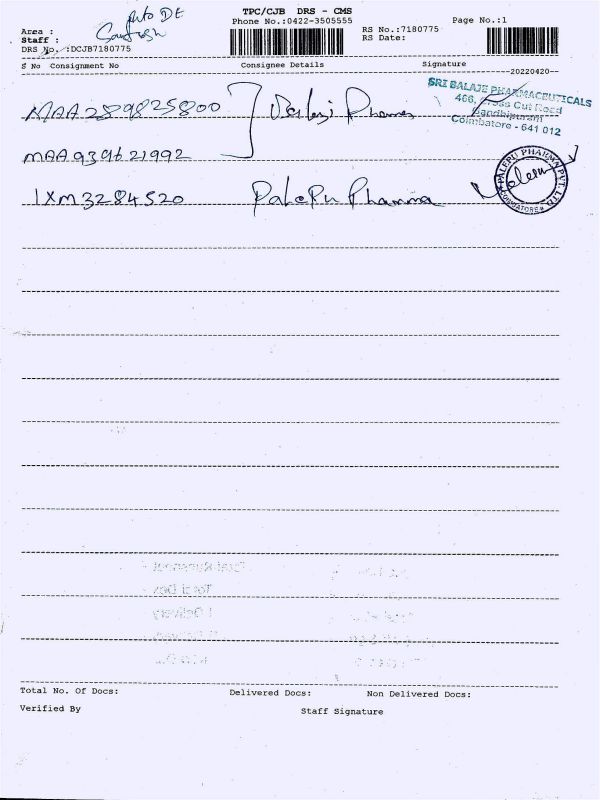 TPC/CJB DRS - CMS
Phone No.:0422-3505555
Page No.:1
Auto DE
Area :
Staff : Santosh
RS No.:7180775
DRS No. :DCJB7180775
RS Date:
S No Consignment No Consignee Details Signature
--20220420--
MAA289825800 Pharma
SRI BALAJE PHARMACEUTICALS
466, Cross Cut Road
Gandhipuram
Coimbatore - 641 012
MAA939621992
1XM3284520 Palepu Pharma
PALEPU PHARMA PVT. LTD.
COIMBATORE
Total No. Of Docs: Delivered Docs: Non Delivered Docs:
Verified By Staff Signature